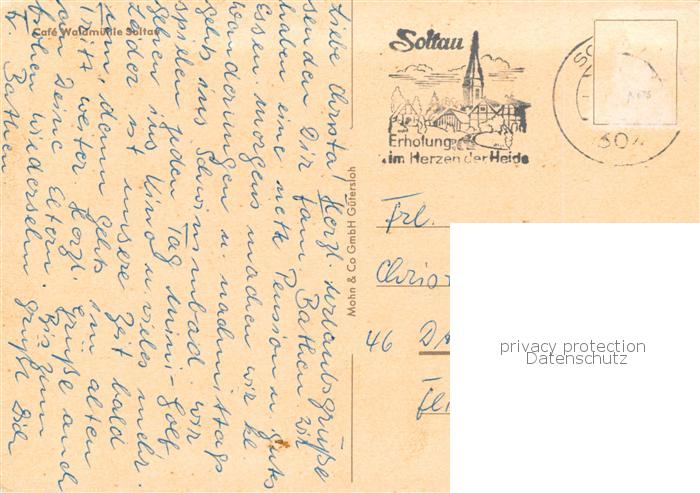 Café Waldmühle Soltau
Liebe Christa! Herzl. Urlaubsgrüße
senden Dir fam. Bathen wir
haben eine nette Pension u. gutes
Essen. morgens machen wir kl.
wanderungen u. nachmittags
gehts ins Schwimmbad. wir
spielen jeden Tag mini-Golf,
gehen ins Kino u. vieles mehr.
Leider ist unsere Zeit bald
um, dann gehts im alten
Tritt weiter. Herzl. Grüße auch
an Deine Eltern. Bis zum
wiedersehn. grüßt Dich
Bathen
Mohn & Co GmbH Gütersloh
Soltau
Erholung
im Herzen der Heide
304
Frl.
Christ
46 D
privacy protection
Datenschutz